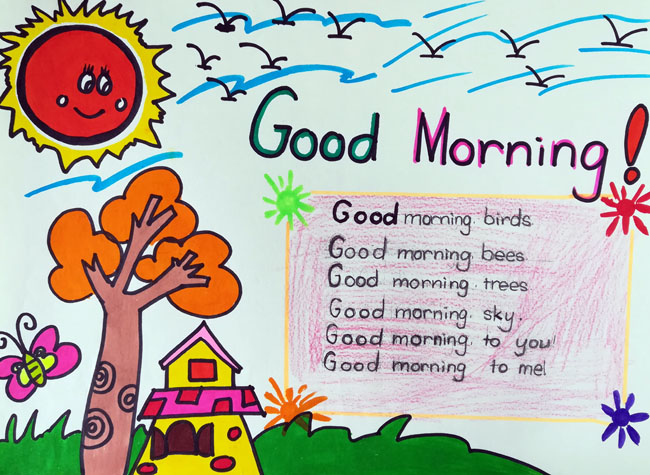 Good Morning!
Good morning birds
Good morning bees
Good morning trees
Good morning sky.
Good morning to you!
Good morning to me!